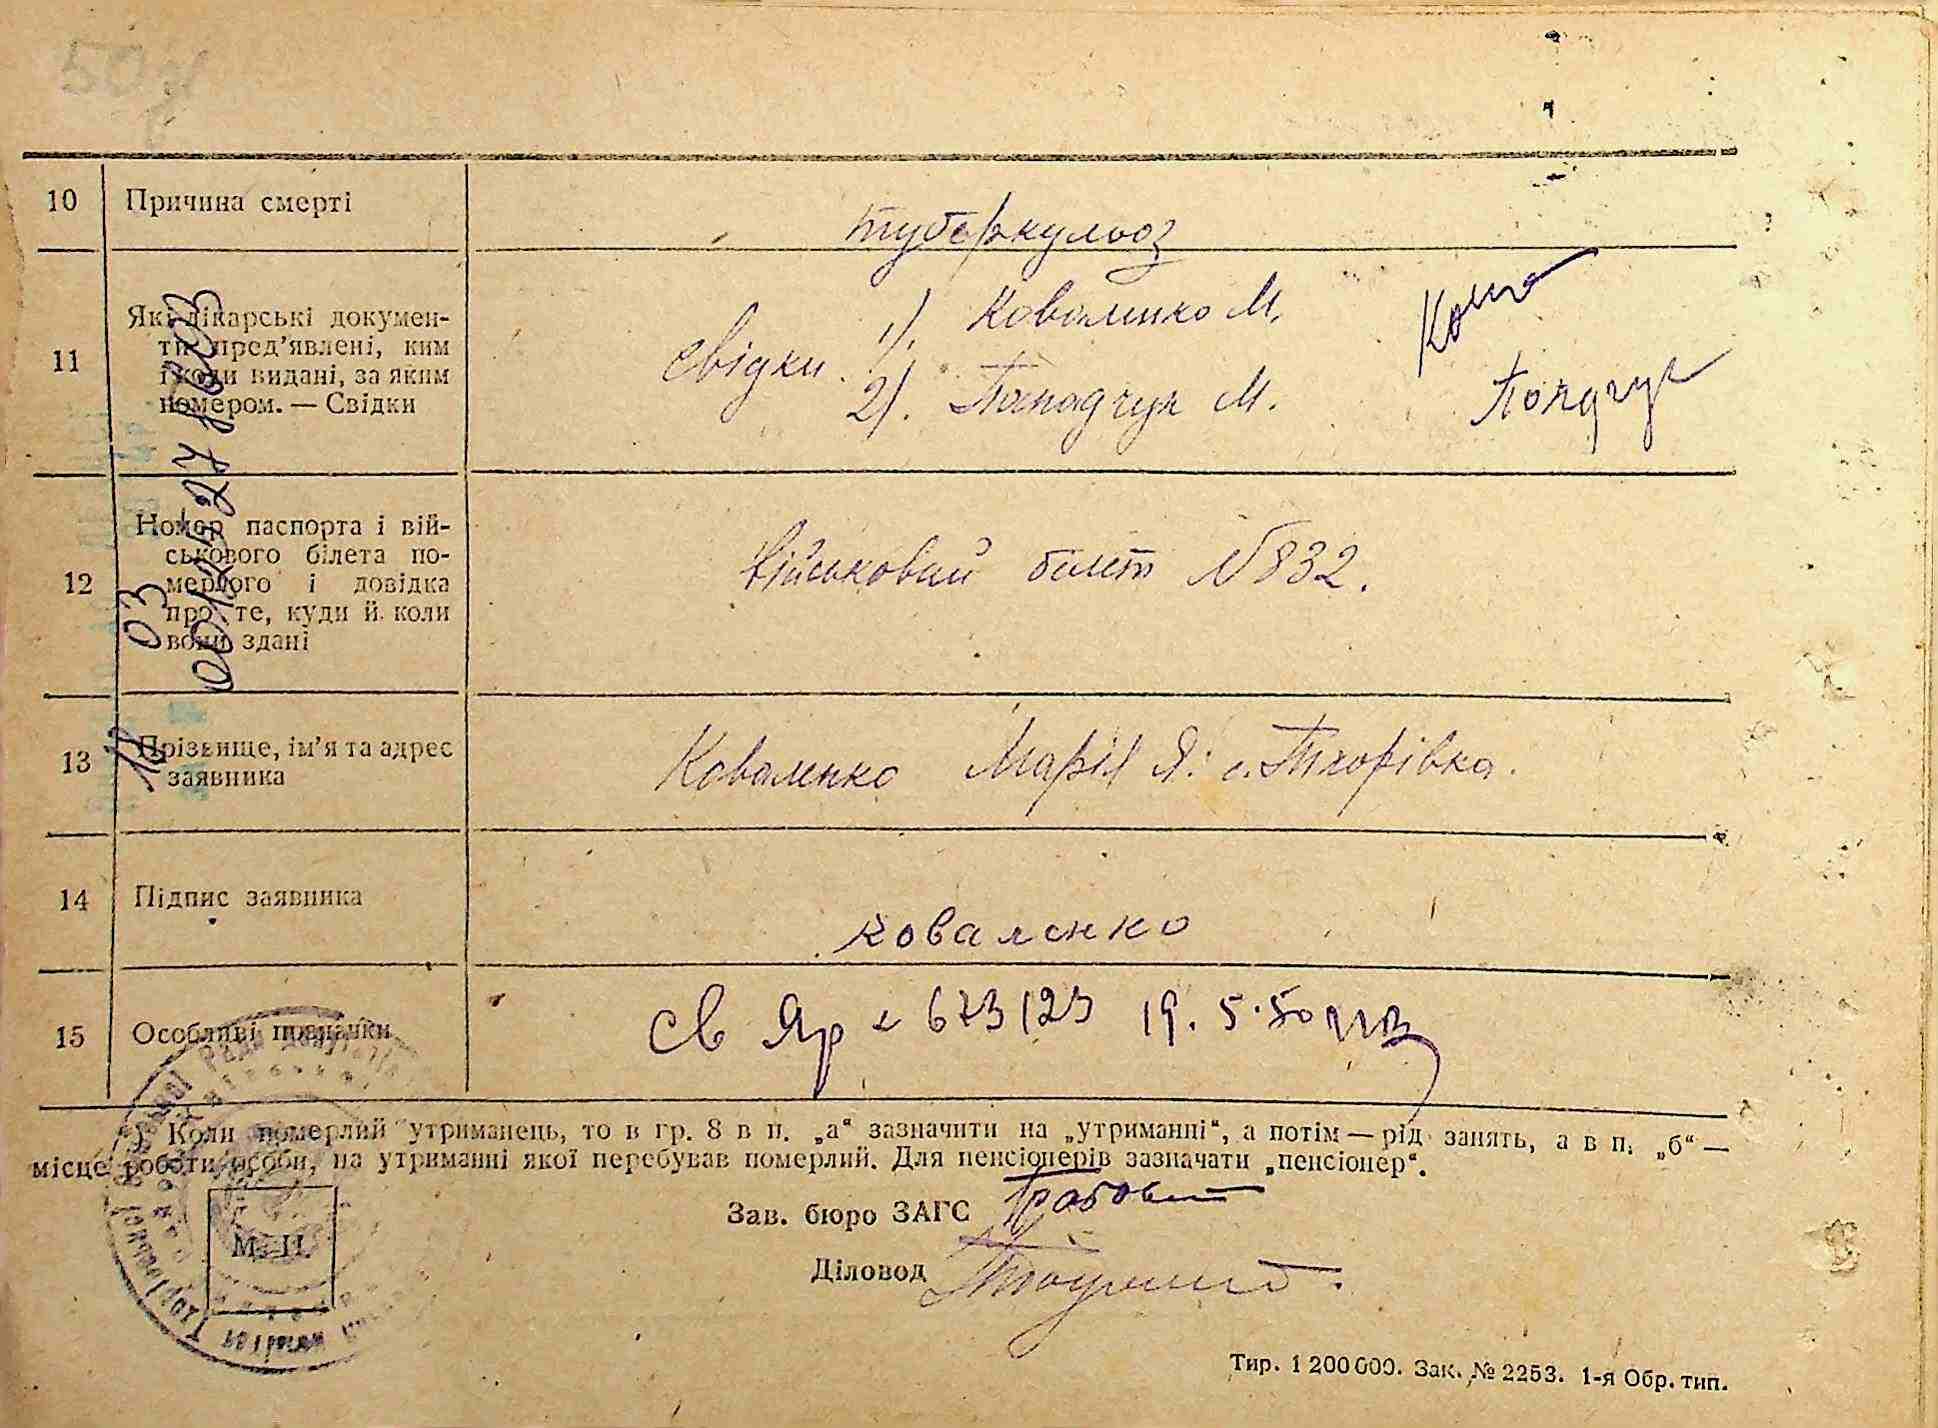 10 Причина смерті
туберкульоз
11 Які лікарські докумен-
ти пред’явлені, ким
і коли видані, за яким
номером. — Свідки
свідки. 1). Коваленко М.
2). Панадчук М.
12 Номер паспорта і вій-
ськового білета по-
мерлого і довідка
про те, куди й коли
вони здані
Військовий білет №832.
13 Прізвище, ім’я та адрес
заявника
Коваленко Марія Я. с. Тхорівка.
14 Підпис заявника
Коваленко
15 Особливі позначки
св Яр 673123 19.5.50
*) Коли померлий утриманець, то в гр. 8 в п. „а“ зазначити на „утриманні“, а потім — рід занять, а в п. „б“ —
місце роботи особи, на утриманні якої перебував померлий. Для пенсіонерів зазначати „пенсіонер“.
Зав. бюро ЗАГС
М. П.
Діловод
Тир. 1 200 000. Зак. № 2253. 1-я Обр. тип.